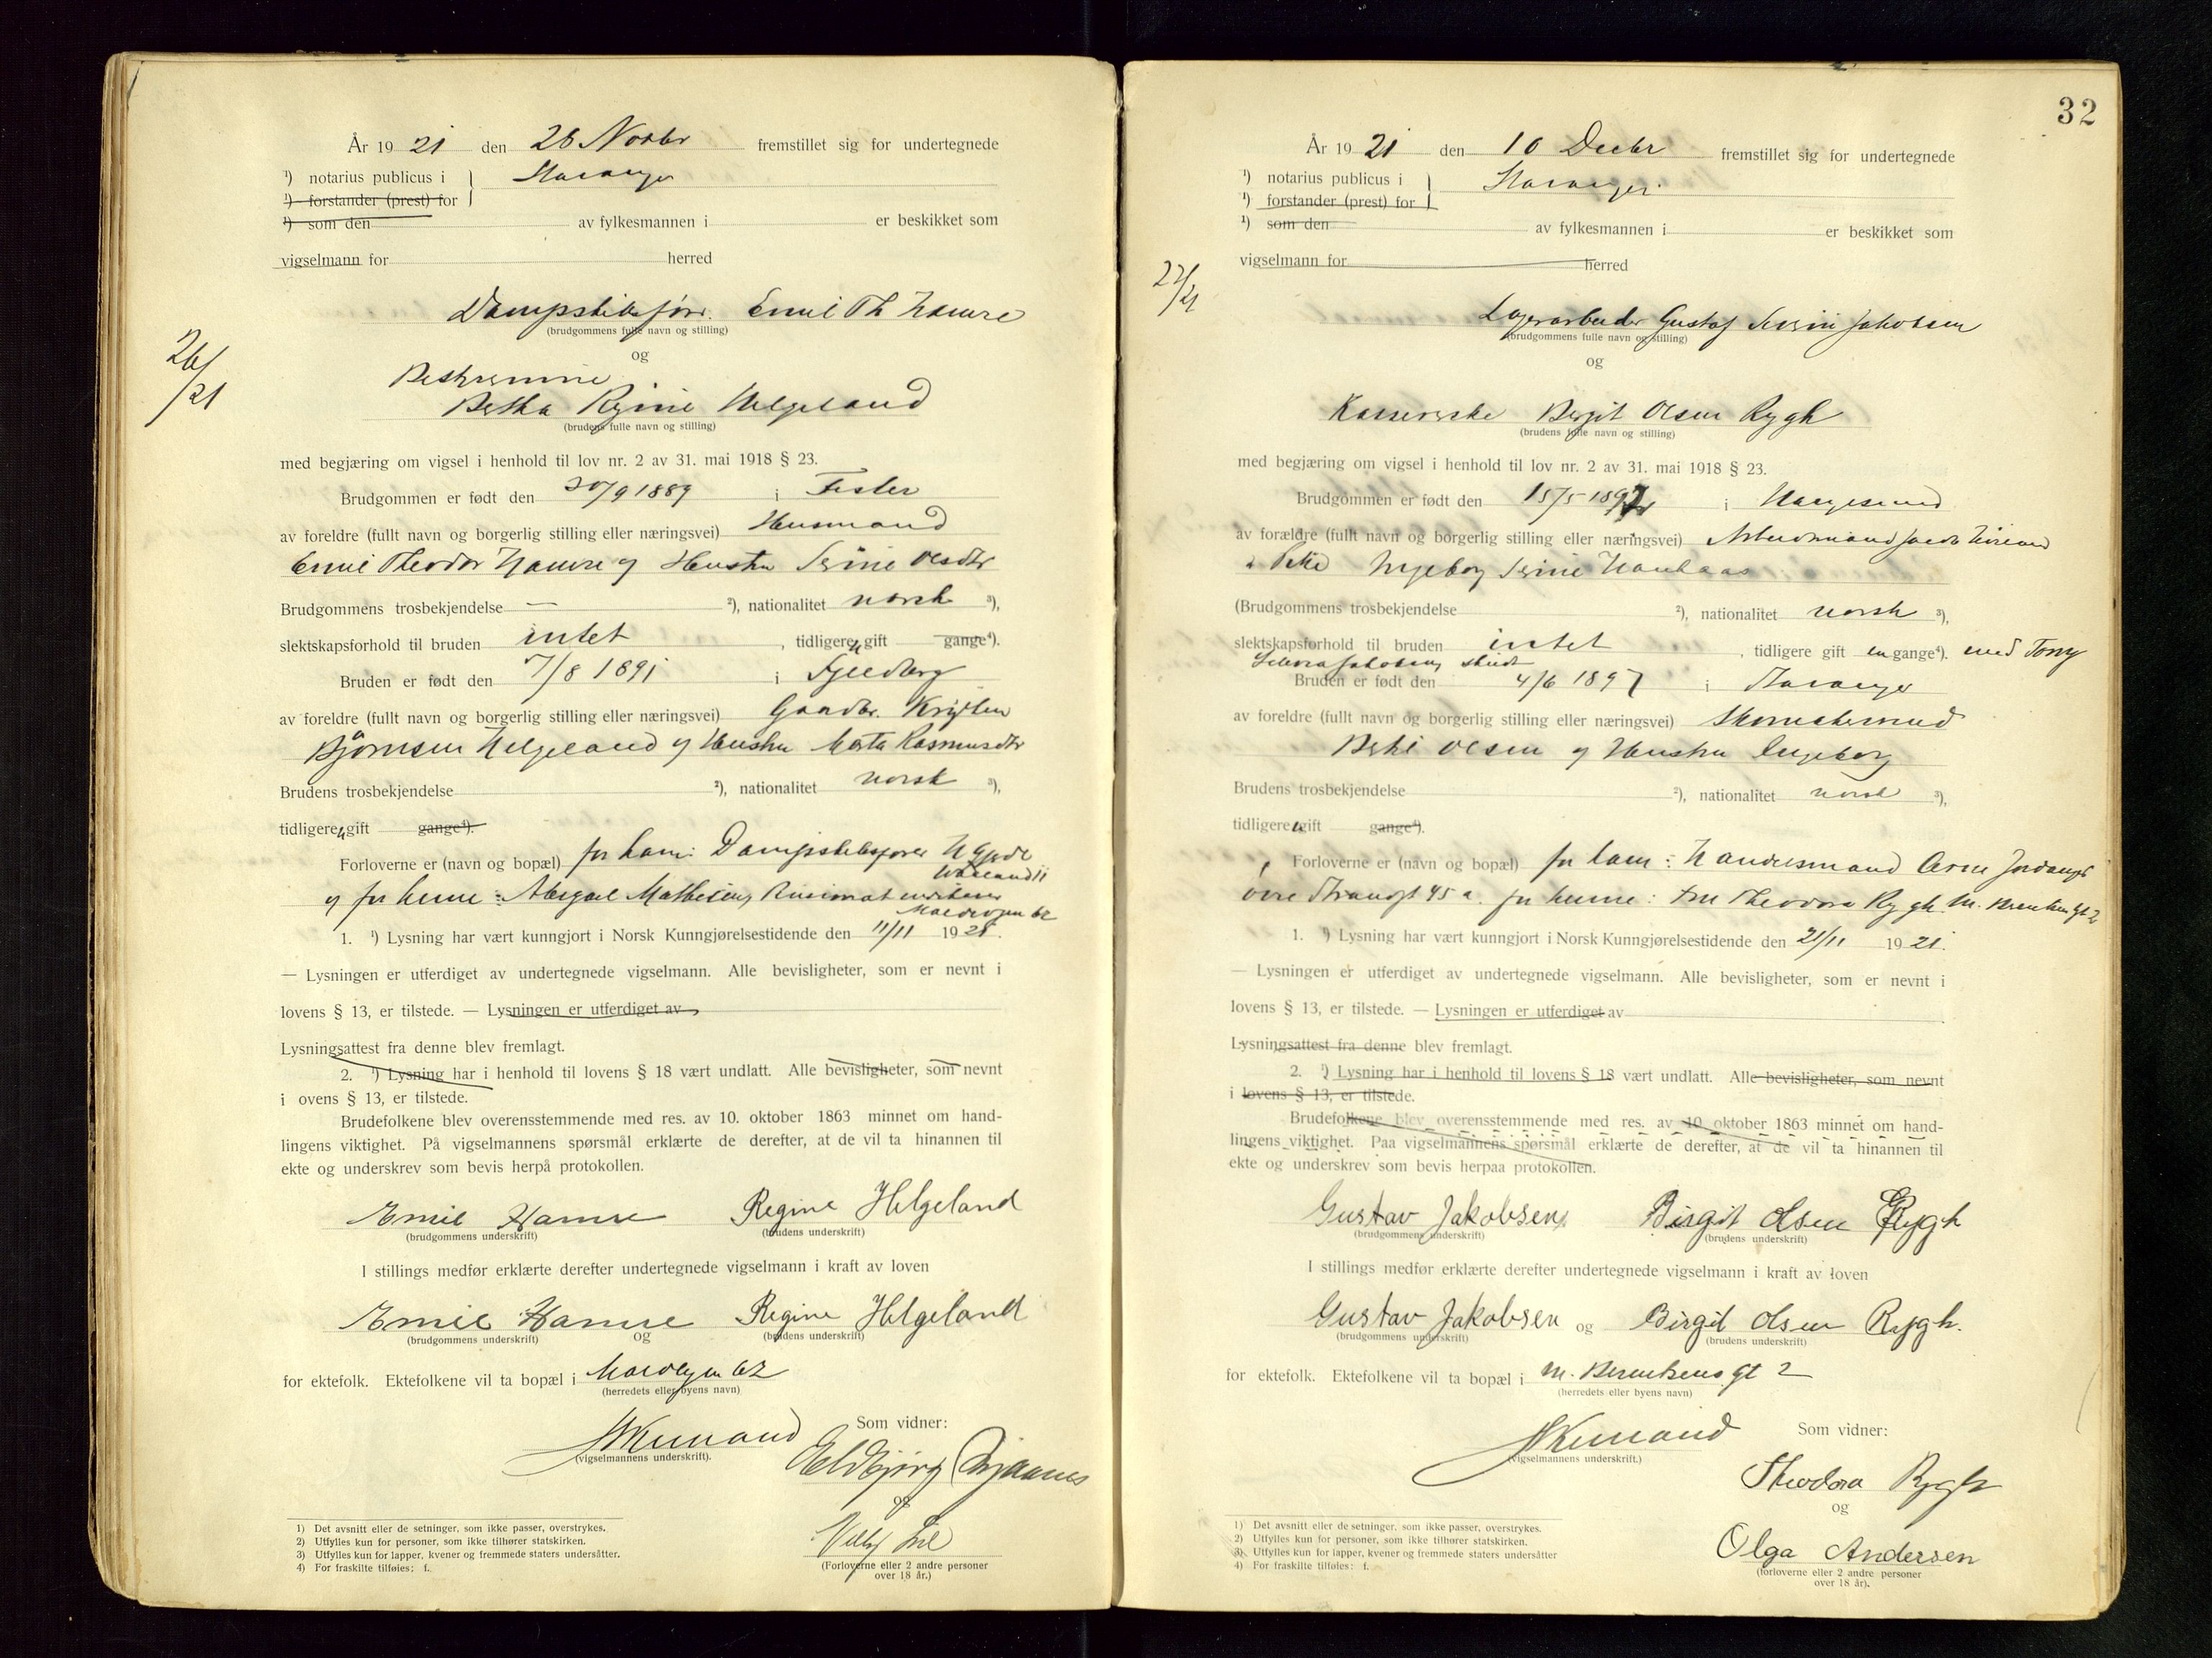 År 19 21 den 26 Novbr fremstillet sig for undertegnede
¹) notarius publicus i Stavanger
¹) forstander (prest) for
¹) som den av fylkesmannen i er beskikket som
vigselmann for herred
Emil Th Hamre
(brudgommens fulle navn og stilling)
26/21
og
Bestyrerinne
Betha Regine Helgeland
(brudens fulle navn og stilling)
med begjæring om vigsel i henhold til lov nr. 2 av 31. mai 1918 § 23.
Brudgommen er født den 30/9 1889 i Fister
av foreldre (fullt navn og borgerlig stilling eller næringsvei) Husmand
Emil Theodor Hamre og Hustru Serine Olsdtr
Brudgommens trosbekjendelse — ²), nationalitet norsk ³),
slektskapsforhold til bruden intet , tidligere u gift gange⁴).
Bruden er født den 7/8 1891 i Fjeldberg
av foreldre (fullt navn og borgerlig stilling eller næringsvei) Gaardbr. Kristen
Bjørnsen Helgeland og Hustru Marta Rasmusdtr
Brudens trosbekjendelse ²), nationalitet norsk ³),
tidligere u gift gange⁴).
Forloverne er (navn og bopæl) for ham: Dampskibsfører
og for henne: Abigael Mathiesen,
1. ¹) Lysning har vært kunngjort i Norsk Kunngjørelsestidende den 11/11 1921.
— Lysningen er utferdiget av undertegnede vigselmann. Alle bevisligheter, som er nevnt i
lovens § 13, er tilstede. — Lysningen er utferdiget av
Lysningsattest fra denne blev fremlagt.
2. ¹) Lysning har i henhold til lovens § 18 vært undlatt. Alle bevisligheter, som nevnt
i ovens § 13, er tilstede.
Brudefolkene blev overensstemmende med res. av 10. oktober 1863 minnet om hand-
lingens viktighet. På vigselmannens spørsmål erklærte de derefter, at de vil ta hinannen til
ekte og underskrev som bevis herpå protokollen.
Emil Hamre Regine Helgeland
(brudgommens underskrift) (brudens underskrift)
I stillings medfør erklærte derefter undertegnede vigselmann i kraft av loven
Emil Hamre og Regine Helgeland
(brudgommens underskrift) (brudens underskrift)
for ektefolk. Ektefolkene vil ta bopæl i 62
(herredets eller byens navn)
Som vidner:
(vigselmannens underskrift).
Eldbjørg
og
(Forloverne eller 2 andre personer
over 18 år.)
1) Det avsnitt eller de setninger, som ikke passer, overstrykes.
2) Utfylles kun for personer, som ikke tilhører statskirken.
3) Utfylles kun for lapper, kvener og fremmede staters undersåtter.
4) For fraskilte tilføies: f.
32
År 19 21 den 10 Decbr fremstillet sig for undertegnede
¹) notarius publicus i Stavanger
¹) forstander (prest) for
¹) som den av fylkesmannen i er beskikket som
vigselmann for herred
27/21
Lagerarbeider Gustaf Severin Jakobsen
(brudgommens fulle navn og stilling)
og
Kassererske Birgit Olsen Rygh
(brudens fulle navn og stilling)
med begjæring om vigsel i henhold til lov nr. 2 av 31. mai 1918 § 23.
Brudgommen er født den 15/5 1897 i Haugesund
av forældre (fullt navn og borgerlig stilling eller næringsvei) Arbeidsmand Jacob
Ingeborg Serine
(Brudgommens trosbekjendelse ²), nationalitet norsk ³),
slektskapsforhold til bruden intet , tidligere gift en gange⁴). med Tony
Jakobsen, skilt
Bruden er født den 4/6 1897 i Stavanger
av foreldre (fullt navn og borgerlig stilling eller næringsvei) Skomakersvend
Olsen og Hustru Ingeborg
Brudens trosbekjendelse ²), nationalitet norsk ³),
tidligere u gift gange⁴).
Forloverne er (navn og bopæl) for ham: Handelsmand Arne
øvre Strandgt 45 a. for henne: Fru Theodora Rygh M. Berentsens gt 2
1. ¹) Lysning har vært kunngjort i Norsk Kunngjørelsestidende den 21/11 1921.
— Lysningen er utferdiget av undertegnede vigselmann. Alle bevisligheter, som er nevnt i
lovens § 13, er tilstede. — Lysningen er utferdiget av
Lysningsattest fra denne blev fremlagt.
2. ¹) Lysning har i henhold til lovens § 18 vært undlatt. Alle bevisligheter, som nevnt
i lovens § 13, er tilstede.
Brudefolkene blev overensstemmende med res. av 10. oktober 1863 minnet om hand-
lingens viktighet. Paa vigselmannens spørsmål erklærte de derefter, at de vil ta hinannen til
ekte og underskrev som bevis herpaa protokollen.
Gustav Jakobsen Birgit Olsen Rygh
(brudgommens underskrift) (brudens underskrift)
I stillings medfør erklærte derefter undertegnede vigselmann i kraft av loven
Gustav Jakobsen og Birgit Olsen Rygh.
(brudgommens underskrift) (brudens underskrift)
for ektefolk. Ektefolkene vil ta bopæl i M. Berentsens gt 2
(herredets eller byens navn)
Som vidner:
(vigselmannens underskrift.)
Theodora Rygh
og
Olga Andersen
(forloverne eller 2 andre personer
over 18 år).
1) Det avsnitt eller de setninger, som ikke passer, overstrykes.
2) Utfylles kun for personer, som ikke tilhører statskirken.
3) Utfylles kun for lapper, kvener og fremmede staters undersåtter
4) For fraskilte tilføies: f.